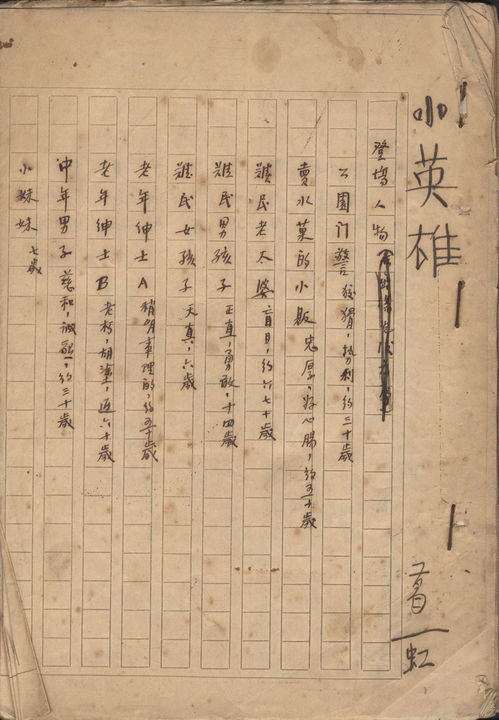 小英雄
葛一虹
登場人物
公園门警 狡猾，势利，約三十歲
賣水菓的小販 忠厚，好心腸，約五十歲
難民老太婆 盲目，約六七十歲
難民男孩子 正直，勇敢，十四歲
難民女孩子 天真，六歲
老年紳士A 稍明事理的，約五十歲
老年紳士B 老朽，胡塗，近六十歲
中年男子 慈和，誠懇，約三十歲
小妹妹 七歲